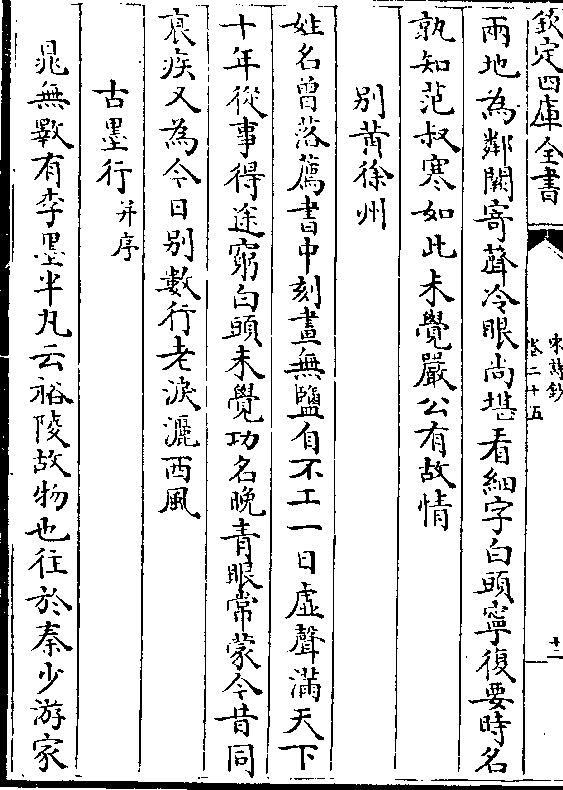 欽定四庫全書
宋詩鈔
卷二十五
十二
兩地為鄰闕寄聲冷眼尚堪看細字白頭寧復要時名
孰知范叔寒如此未覺嚴公有故情
別黄徐州
姓名曾落薦書中刻畫無鹽自不工一日虛聲滿天下
十年從事得途窮白頭未覺功名晚青眼常蒙今昔同
衰疾又為今日别數行老淚灑西風
古墨行并序
晁無斁有李墨半丸云裕陵故物也往於秦少游家